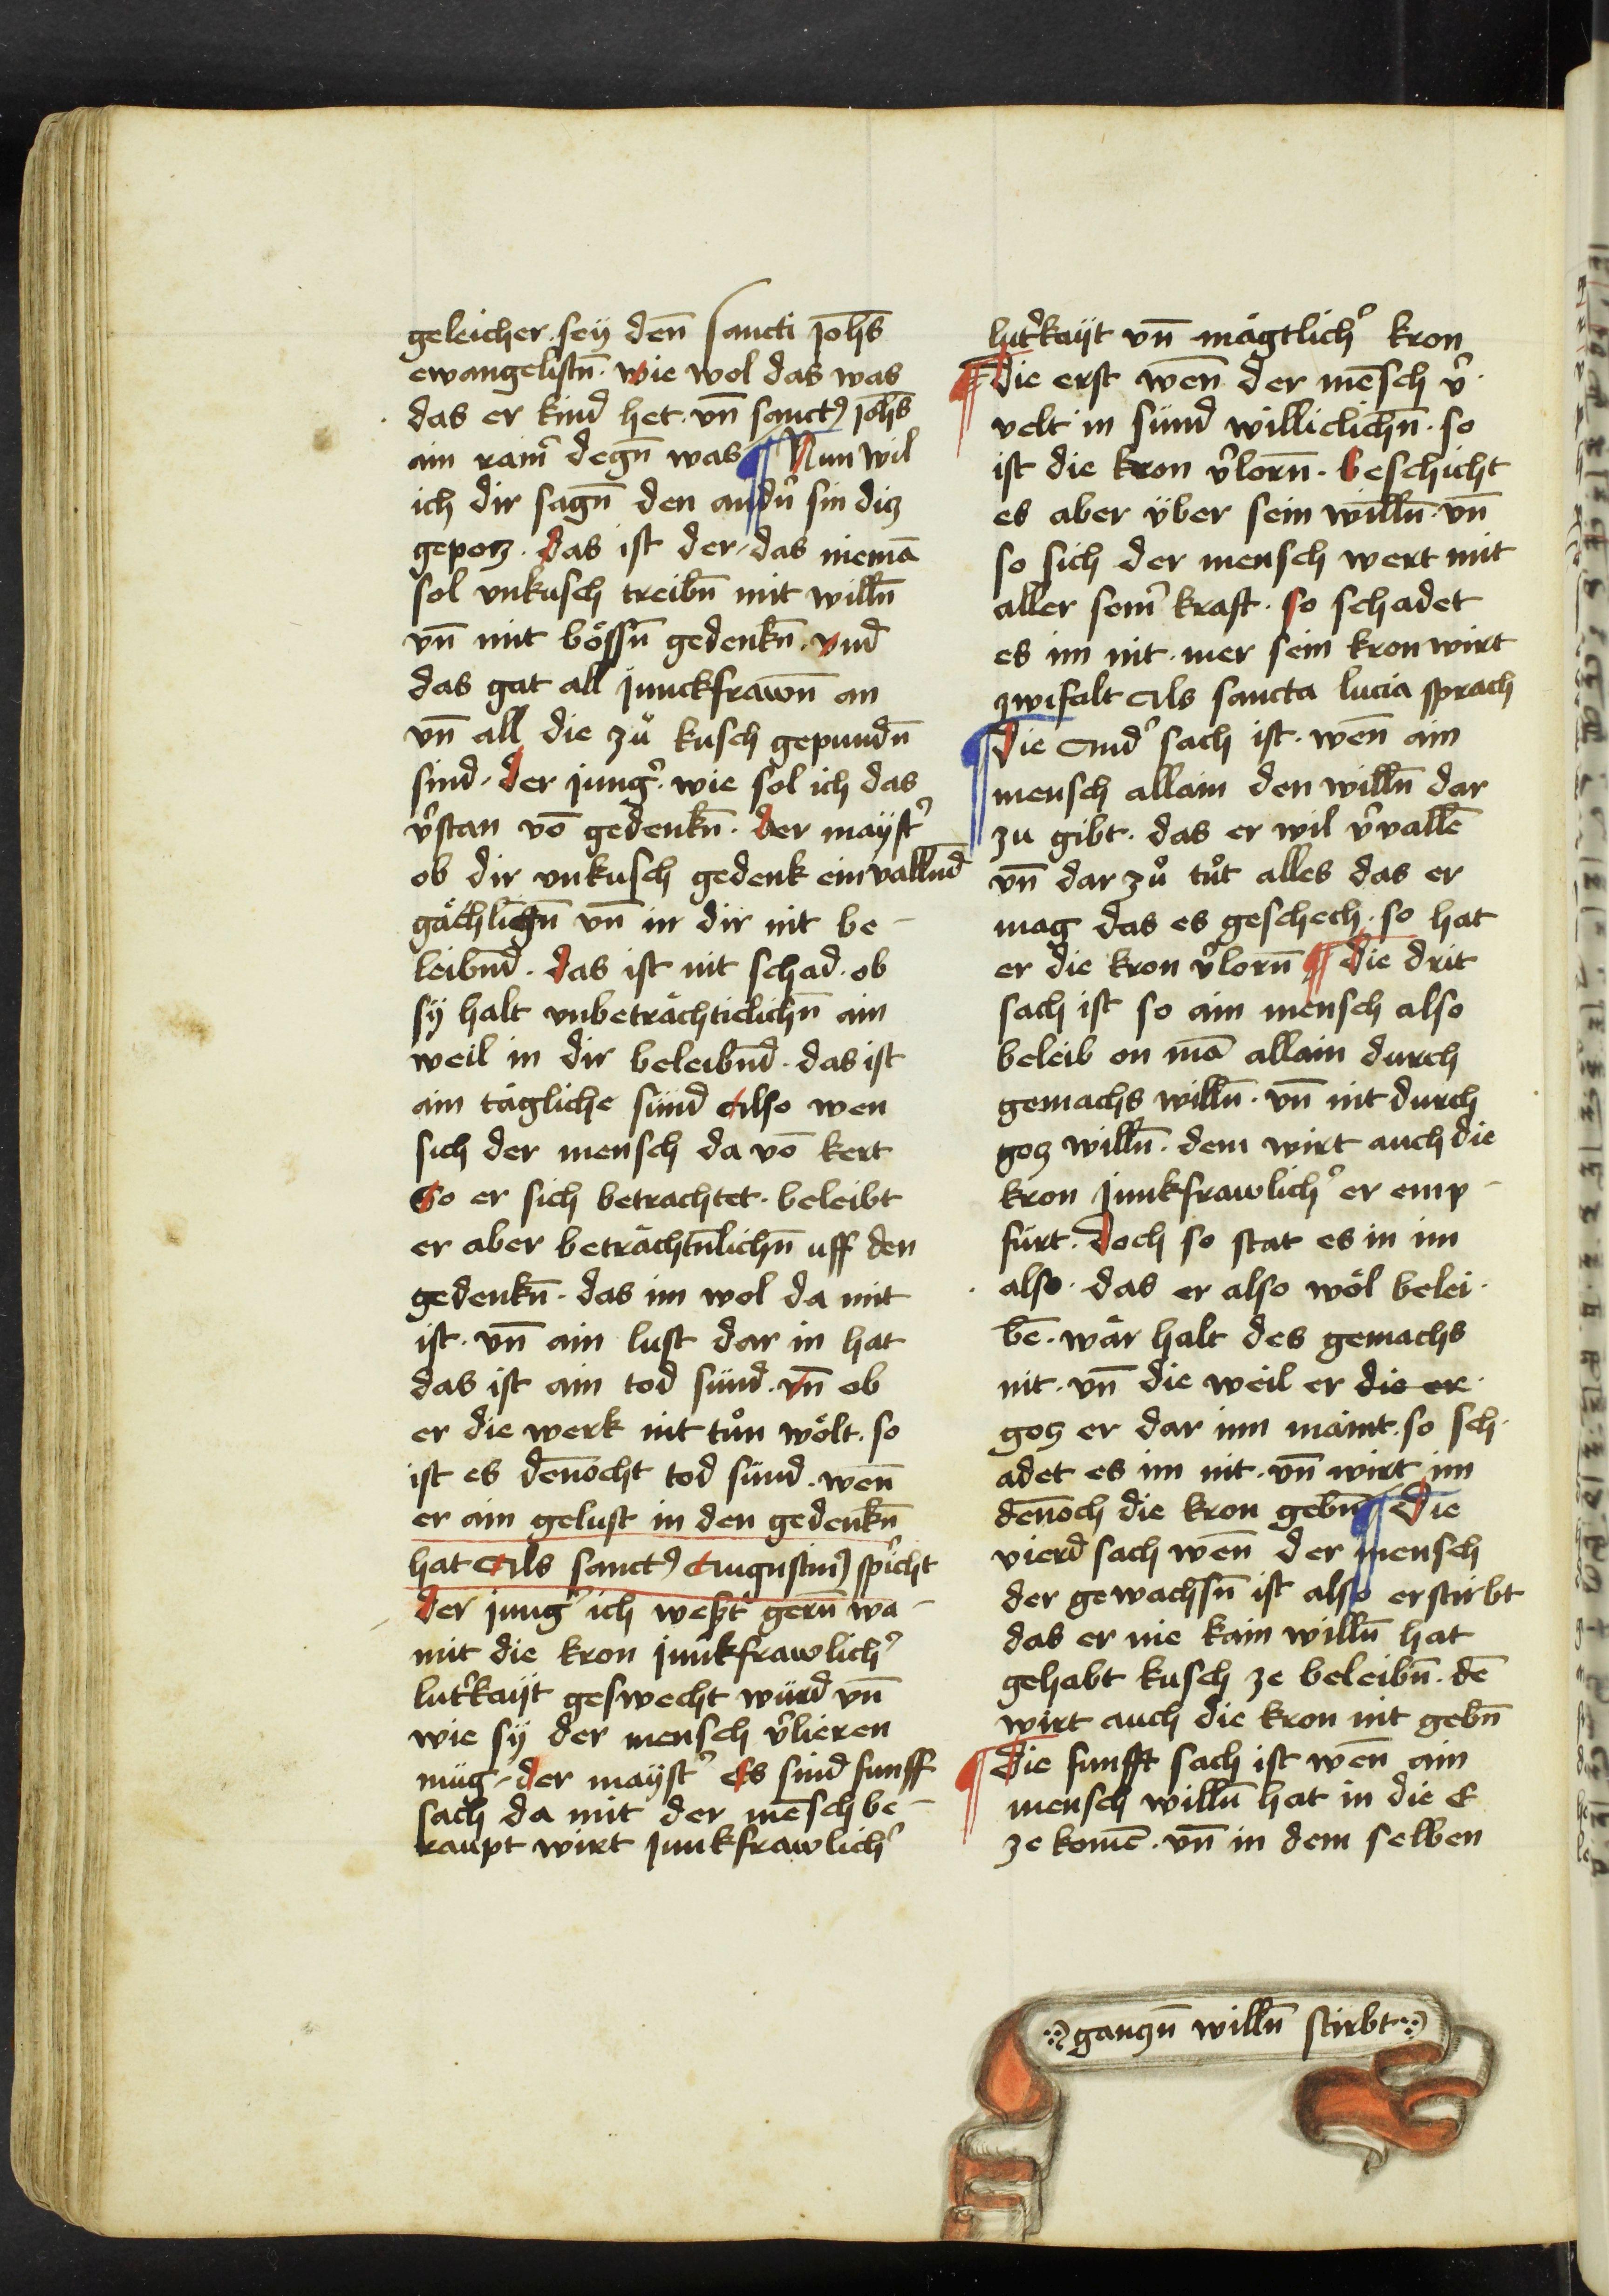 geleicher · sey den̄ sancti joh̄s
ewangelistn̄ · wie wol das was
das er kind het · vn̄ sanctꝰ joh̄s
ain rain̾ degn̄ was ¶ Nun wil
ich dir sagn̄ den andn̾ sin diz
gepotz · das ist der / das niemā
sol vnkusch treibn̄ mit willn̄
vn̄ mit bössn̄ gedenkn̄ · vnd
das gat all junckfrawn̄ an
vn̄ all die zů kusch gepundn̄
sind · der jung̾ · wie sol ich das
v̾stan vō gedenkn̄ · der mayst̾
ob dir vnkusch gedenk einvallnd̄
gächlichn̄ vn̄ in dir nit be-
leibnd̄ · das ist nit schad · ob
sy halt vnbeträchticlichn̄ ain
weil in dir beleibnd̄ · das ist
ain tägliche sünd Also wen
sich der mensch da vō kert
So er sich betrachtet · beleibt
er aber beträchtn̄lichn̄ uff den
gedenkn̄ · das im wol da mit
ist · vn̄ ain lust dar in hat
das ist ain tod sünd · vn̄ ob
er die werk nit tůn wölt · so
ist es den̄ocht tod sünd · wen̄
er ain gelust in den gedenkn̄
hat Als sanctꝰ Augustinꝰ sp̾icht
der jung̾ ich west gern̄ wa-
mit die kron junkfrawlich̾
lut̾kayt geswecht würd vn̄
wie sy der mensch v̾lieren
müg / der mayst̾ Es sind funff
sach da mit der mēsch be-
raupt wirt junkfrawlich̾
lut̾kayt vn̄ mägtlich̾ kron
¶ Die erst wen̄ der mēsch v̾·
velt in sünd williclichn̄ · so
ist die kron v̾lorn̄ · beschicht
es aber über sein willn̄ · vn̄
so sich der mensch wert mit
aller sein̾ kraft · so schadet
es im nit · mer sein kron wirt
zwifalt Als sancta lucia sprach
¶ Die And̾ sach ist · wen̄ ain
mensch allain den willn̄ dar
zu gibt · das er wil v̾vallē
vn̄ dar zů tůt alles das er
mag das es geschech · so hat
er die kron v̾lorn̄ ¶ Die drit
sach ist so ain mensch also
beleib on mā allain durch
gemachs willn̄ · vn̄ nit durch
gotz willn̄ · dem wirt auch die
kron junkfrawlich̾ er emp-
fürt · Doch so stat es in im
also · das er also wöl belei·
bē · wär halt des gemachs
nit · vn̄ die weil er die er·
gotz er dar inn maint · so sch·
adet es im nit · vn̄ wirt im
den̄och die kron gebn̄ ¶ Die
vierd sach wen̄ der mensch
der gewachsn̄ ist also erstirbt
das er nie kain willn̄ hat
gehabt kusch ze beleibn̄ · dē
wirt auch die kron nit gebn̄
¶ Die funfft sach ist wen̄ ain
mensch willn̄ hat in die E
ze komē · vn̄ in dem selben
gantzn̄ willn̄ stirbt